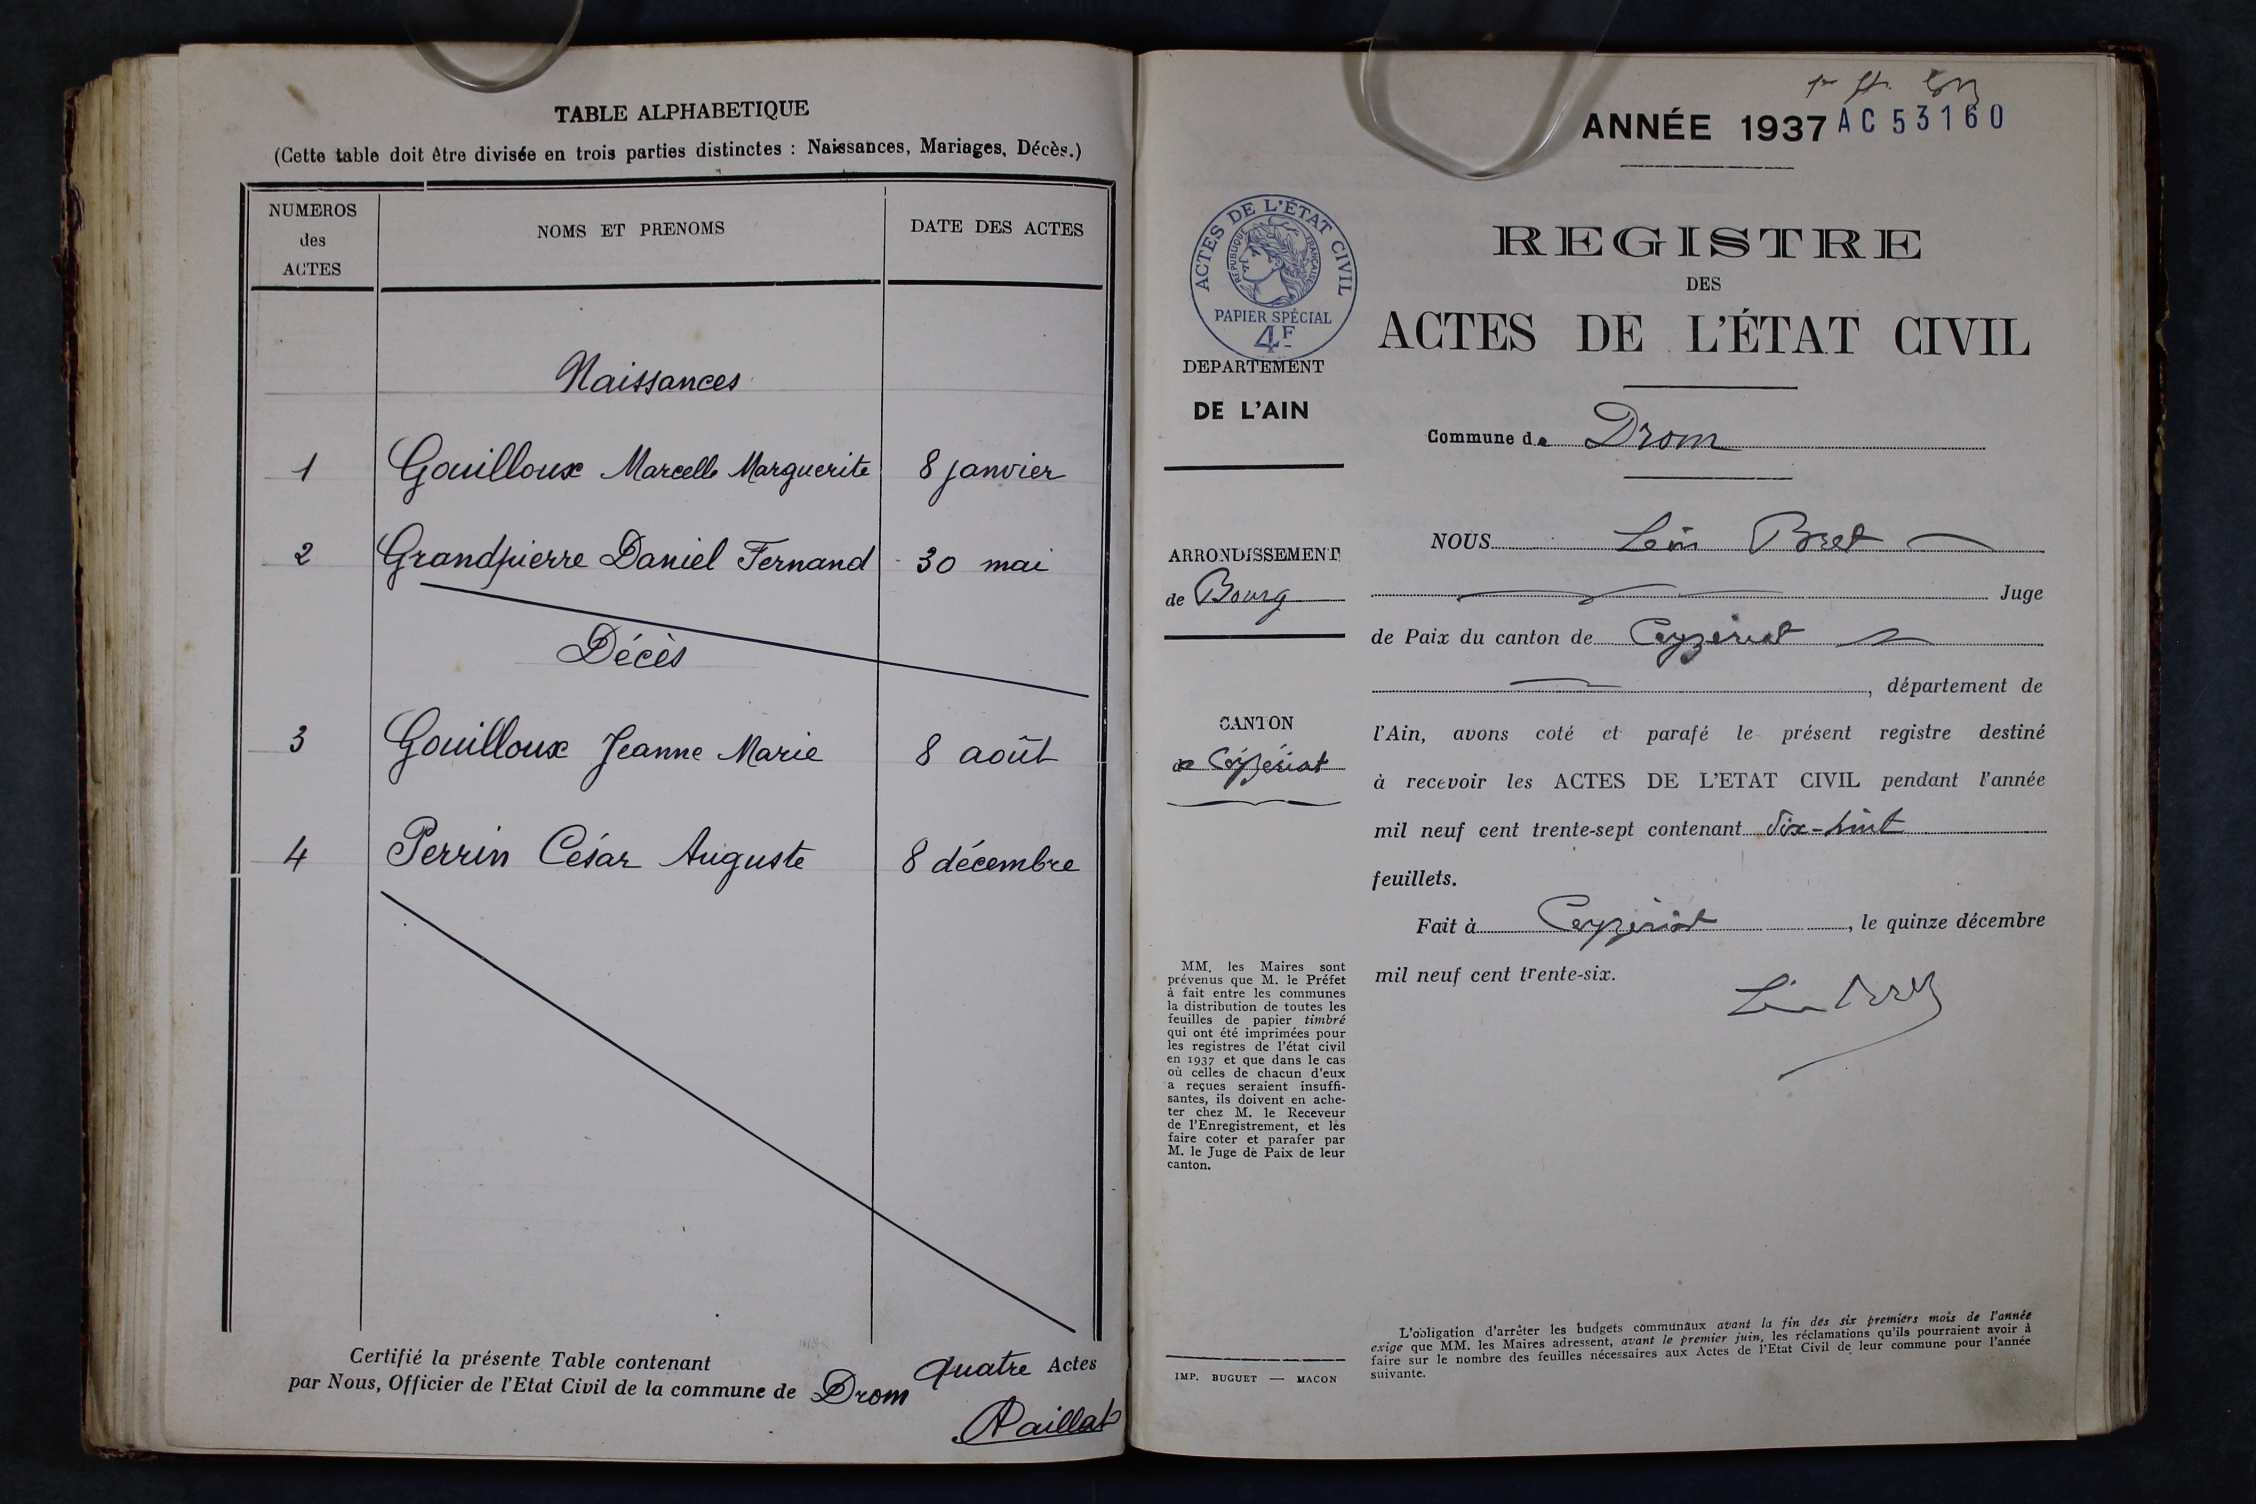 TABLE ALPHABETIQUE
(Cette table doit être divisée en trois parties distinctes : Naissances, Mariages, Décès.)
NUMEROS des ACTES | NOMS ET PRENOMS | DATE DES ACTES
Naissances
1 Gouilloux Marcelle Marguerite 8 janvier
2 Grandpierre Daniel Fernand 30 mai
Décès
3 Gouilloux Jeanne Marie 8 août
4 Perrin César Auguste 8 décembre
Certifié la présente Table contenant quatre Actes
par Nous, Officier de l'Etat Civil de la commune de Drom
Paillat
ANNÉE 1937 AC 53160
ACTES DE L'ÉTAT CIVIL
RÉPUBLIQUE FRANÇAISE
PAPIER SPÉCIAL
4F
DEPARTEMENT
DE L'AIN
ARRONDISSEMENT
de Bourg
CANTON
de Ceyzériat
MM. les Maires sont
prévenus que M. le Préfet
à fait entre les communes
la distribution de toutes les
feuilles de papier timbré
qui ont été imprimées pour
les registres de l'état civil
en 1937 et que dans le cas
où celles de chacun d'eux
a reçues seraient insuffi-
santes, ils doivent en ache-
ter chez M. le Receveur
de l'Enregistrement, et les
faire coter et parafer par
M. le Juge de Paix de leur
canton.
IMP. BUGUET — MACON
REGISTRE
DES
ACTES DE L'ÉTAT CIVIL
Commune de Drom
NOUS Léon Bret
Juge
de Paix du canton de Ceyzériat
, département de
l'Ain, avons coté et parafé le présent registre destiné
à recevoir les ACTES DE L'ETAT CIVIL pendant l'année
mil neuf cent trente-sept contenant dix-huit
feuillets.
Fait à Ceyzériat, le quinze décembre
mil neuf cent trente-six.
Léon Bret
L'obligation d'arrêter les budgets communaux avant la fin des six premiers mois de l'année
exige que MM. les Maires adressent, avant le premier juin, les réclamations qu'ils pourraient avoir à
faire sur le nombre des feuilles nécessaires aux Actes de l'Etat Civil de leur commune pour l'année
suivante.